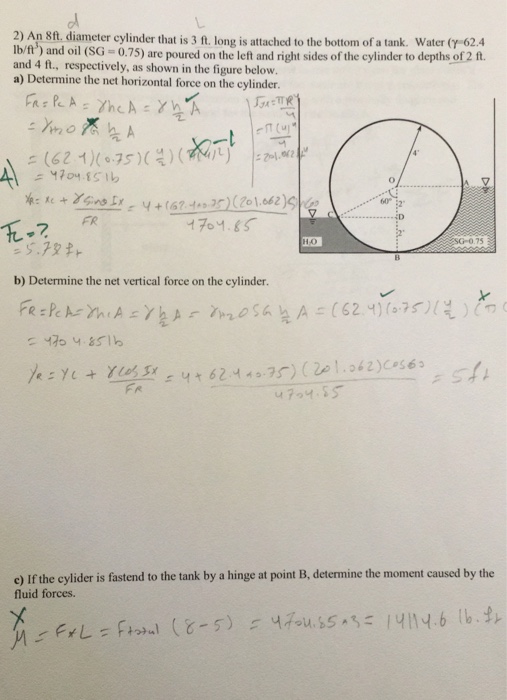 d L
2) An 8ft. diameter cylinder that is 3 ft. long is attached to the bottom of a tank. Water (γ=62.4
lb/ft³) and oil (SG = 0.75) are poured on the left and right sides of the cylinder to depths of 2 ft.
and 4 ft., respectively, as shown in the figure below.
a) Determine the net horizontal force on the cylinder.
FR = Pc A = γhc A = γ h/2 A
= γH2O SG h/2 A
-1
= (62.4)(0.75)(4/2)
= 4704.85 lb
4)
Ix = πR⁴/4
= π(4)⁴/4
= 201.062
= 4 + (62.4×0.75)(201.062)
FR
4704.85
FL = ?
= 5.78 ft
4'
O
A
60°
2'
C
D
2'
H₂O
SG=0.75
B
b) Determine the net vertical force on the cylinder.
FR = Pc A = γhc A = γ h/2 A = γH2O SG h/2 A = (62.4)(0.75)(4/2)
= 4704.85 lb
yR = yc + γcosθ Ix / FR = 4 + 62.4×0.75)(201.062)cos60 / 4704.85 = 5 ft
c) If the cylider is fastend to the tank by a hinge at point B, determine the moment caused by the
fluid forces.
X
M = F×L = Ftotal (8-5) = 4704.85×3 = 14114.6 lb.ft